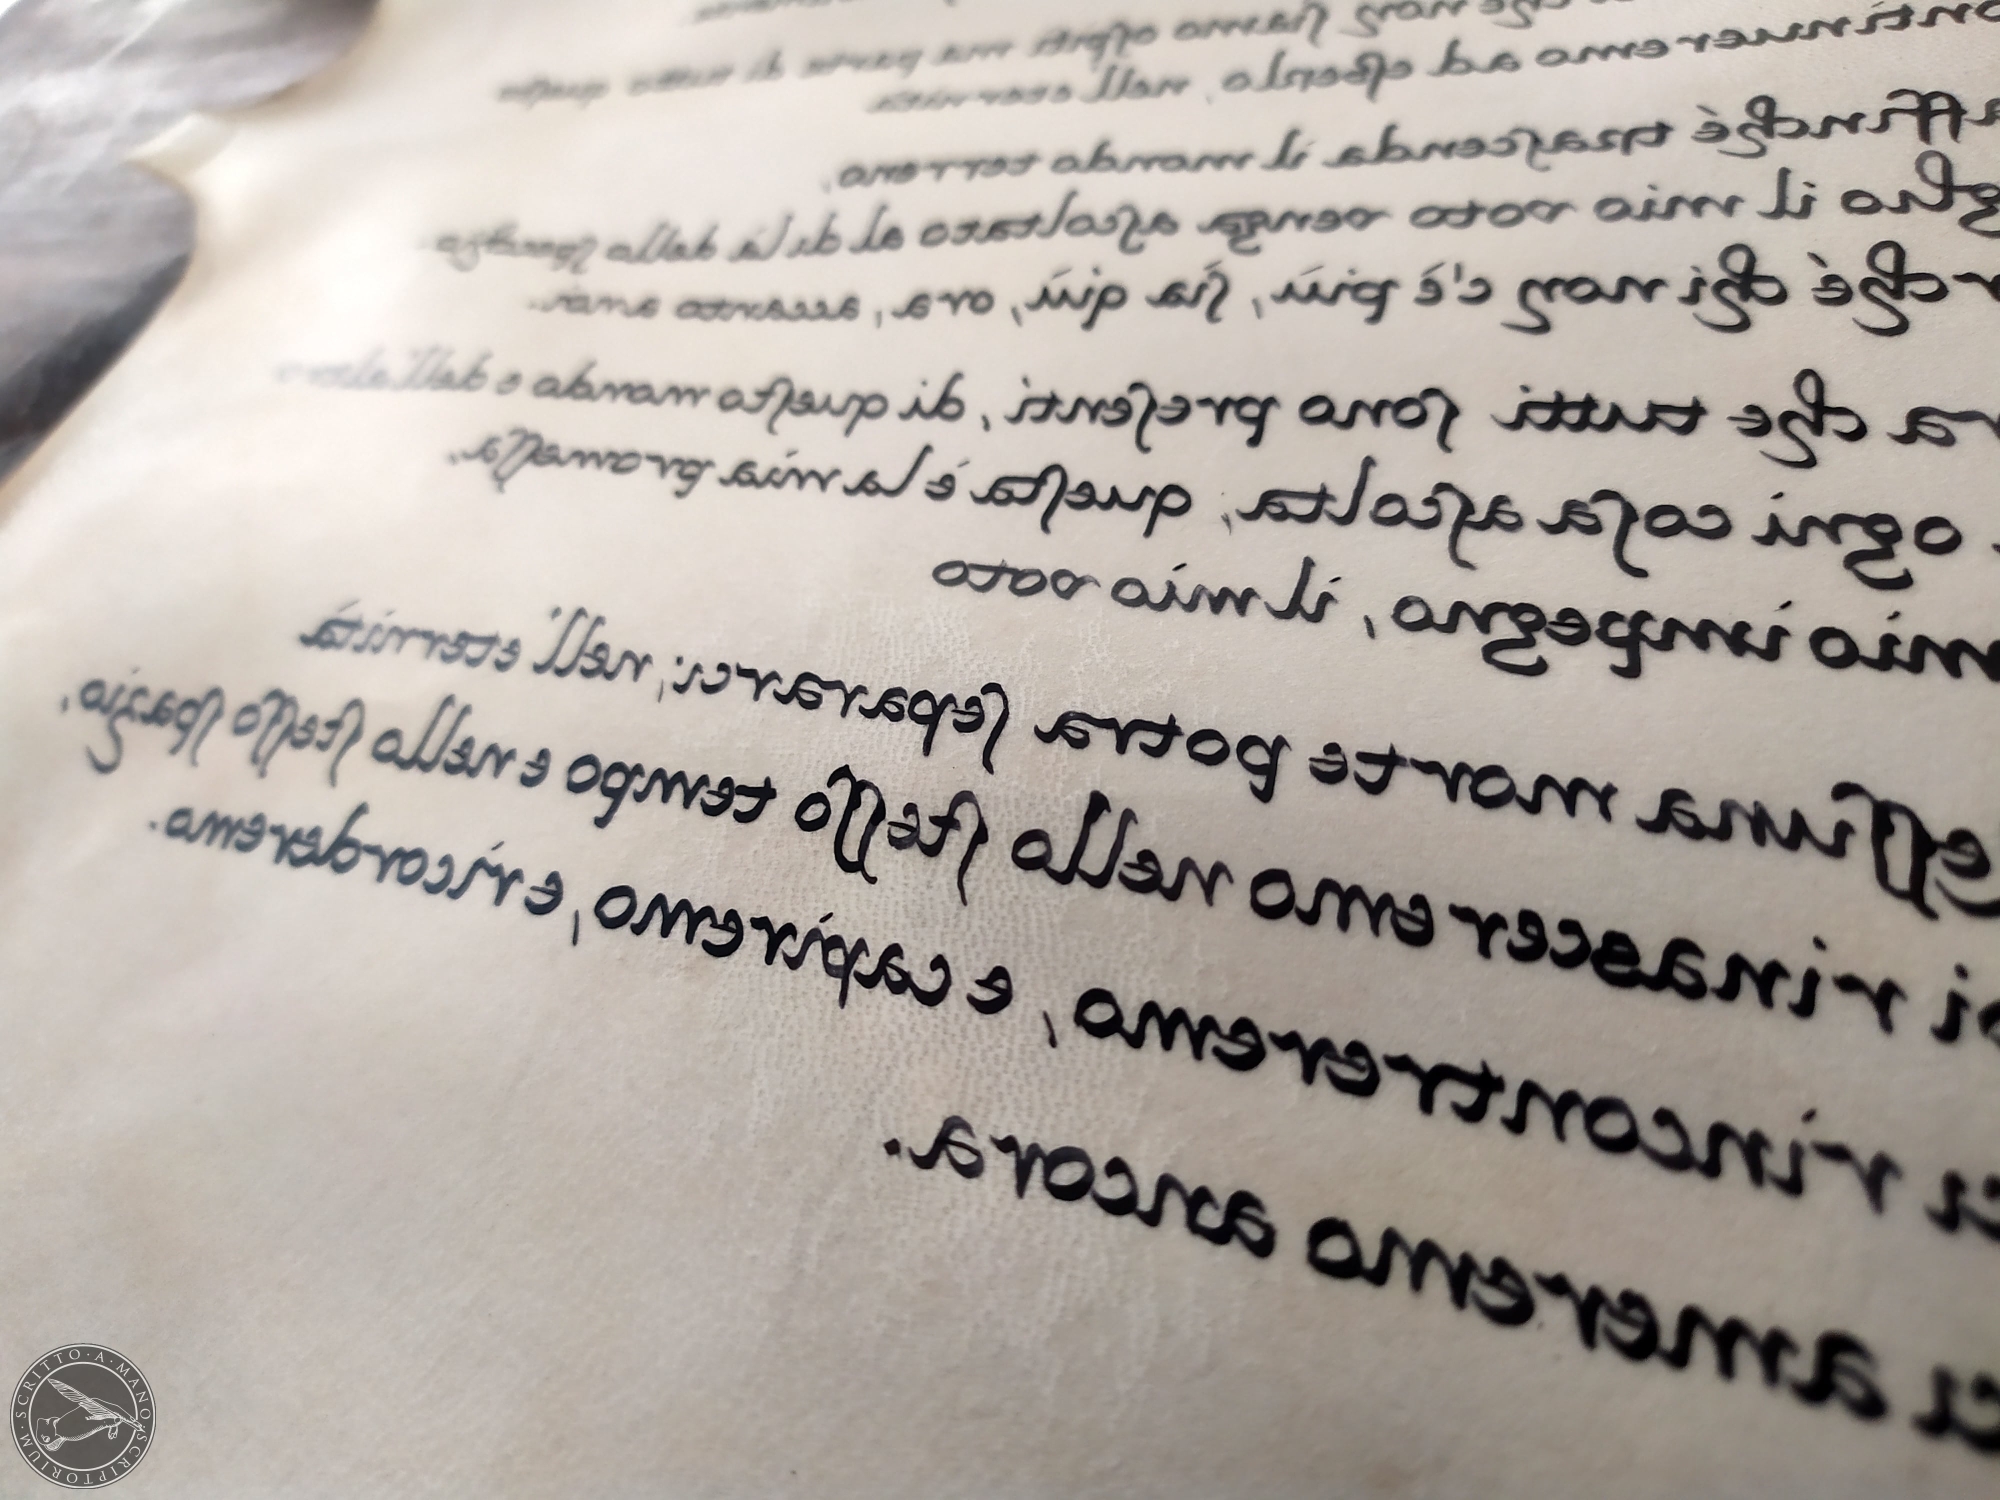 che non ſiamo oſpiti ma parte di tutto queſto
ontinueremo ad eſſerlo, nell'eternità.
affinché traſcenda il mondo terreno,
glio il mio voto venga aſcoltato al di là dello ſpecchio
rché chi non c'é più, ſia qui, ora, accanto a noi.
ra che tutti ſono preſenti, di queſto mondo e dell'altro
ogni coſa aſcolta, queſta é la mia promeſſa,
mio impegno, il mio voto
eſſuna morte potra ſepararci; nell'eternità
oi rinasceremo nello ſteſſo tempo e nello ſteſſo ſpazio,
ci rincontreremo, e capiremo, e ricorderemo.
ci ameremo ancora.
SCRITTO · A · MANO · SCRIPTORIUM